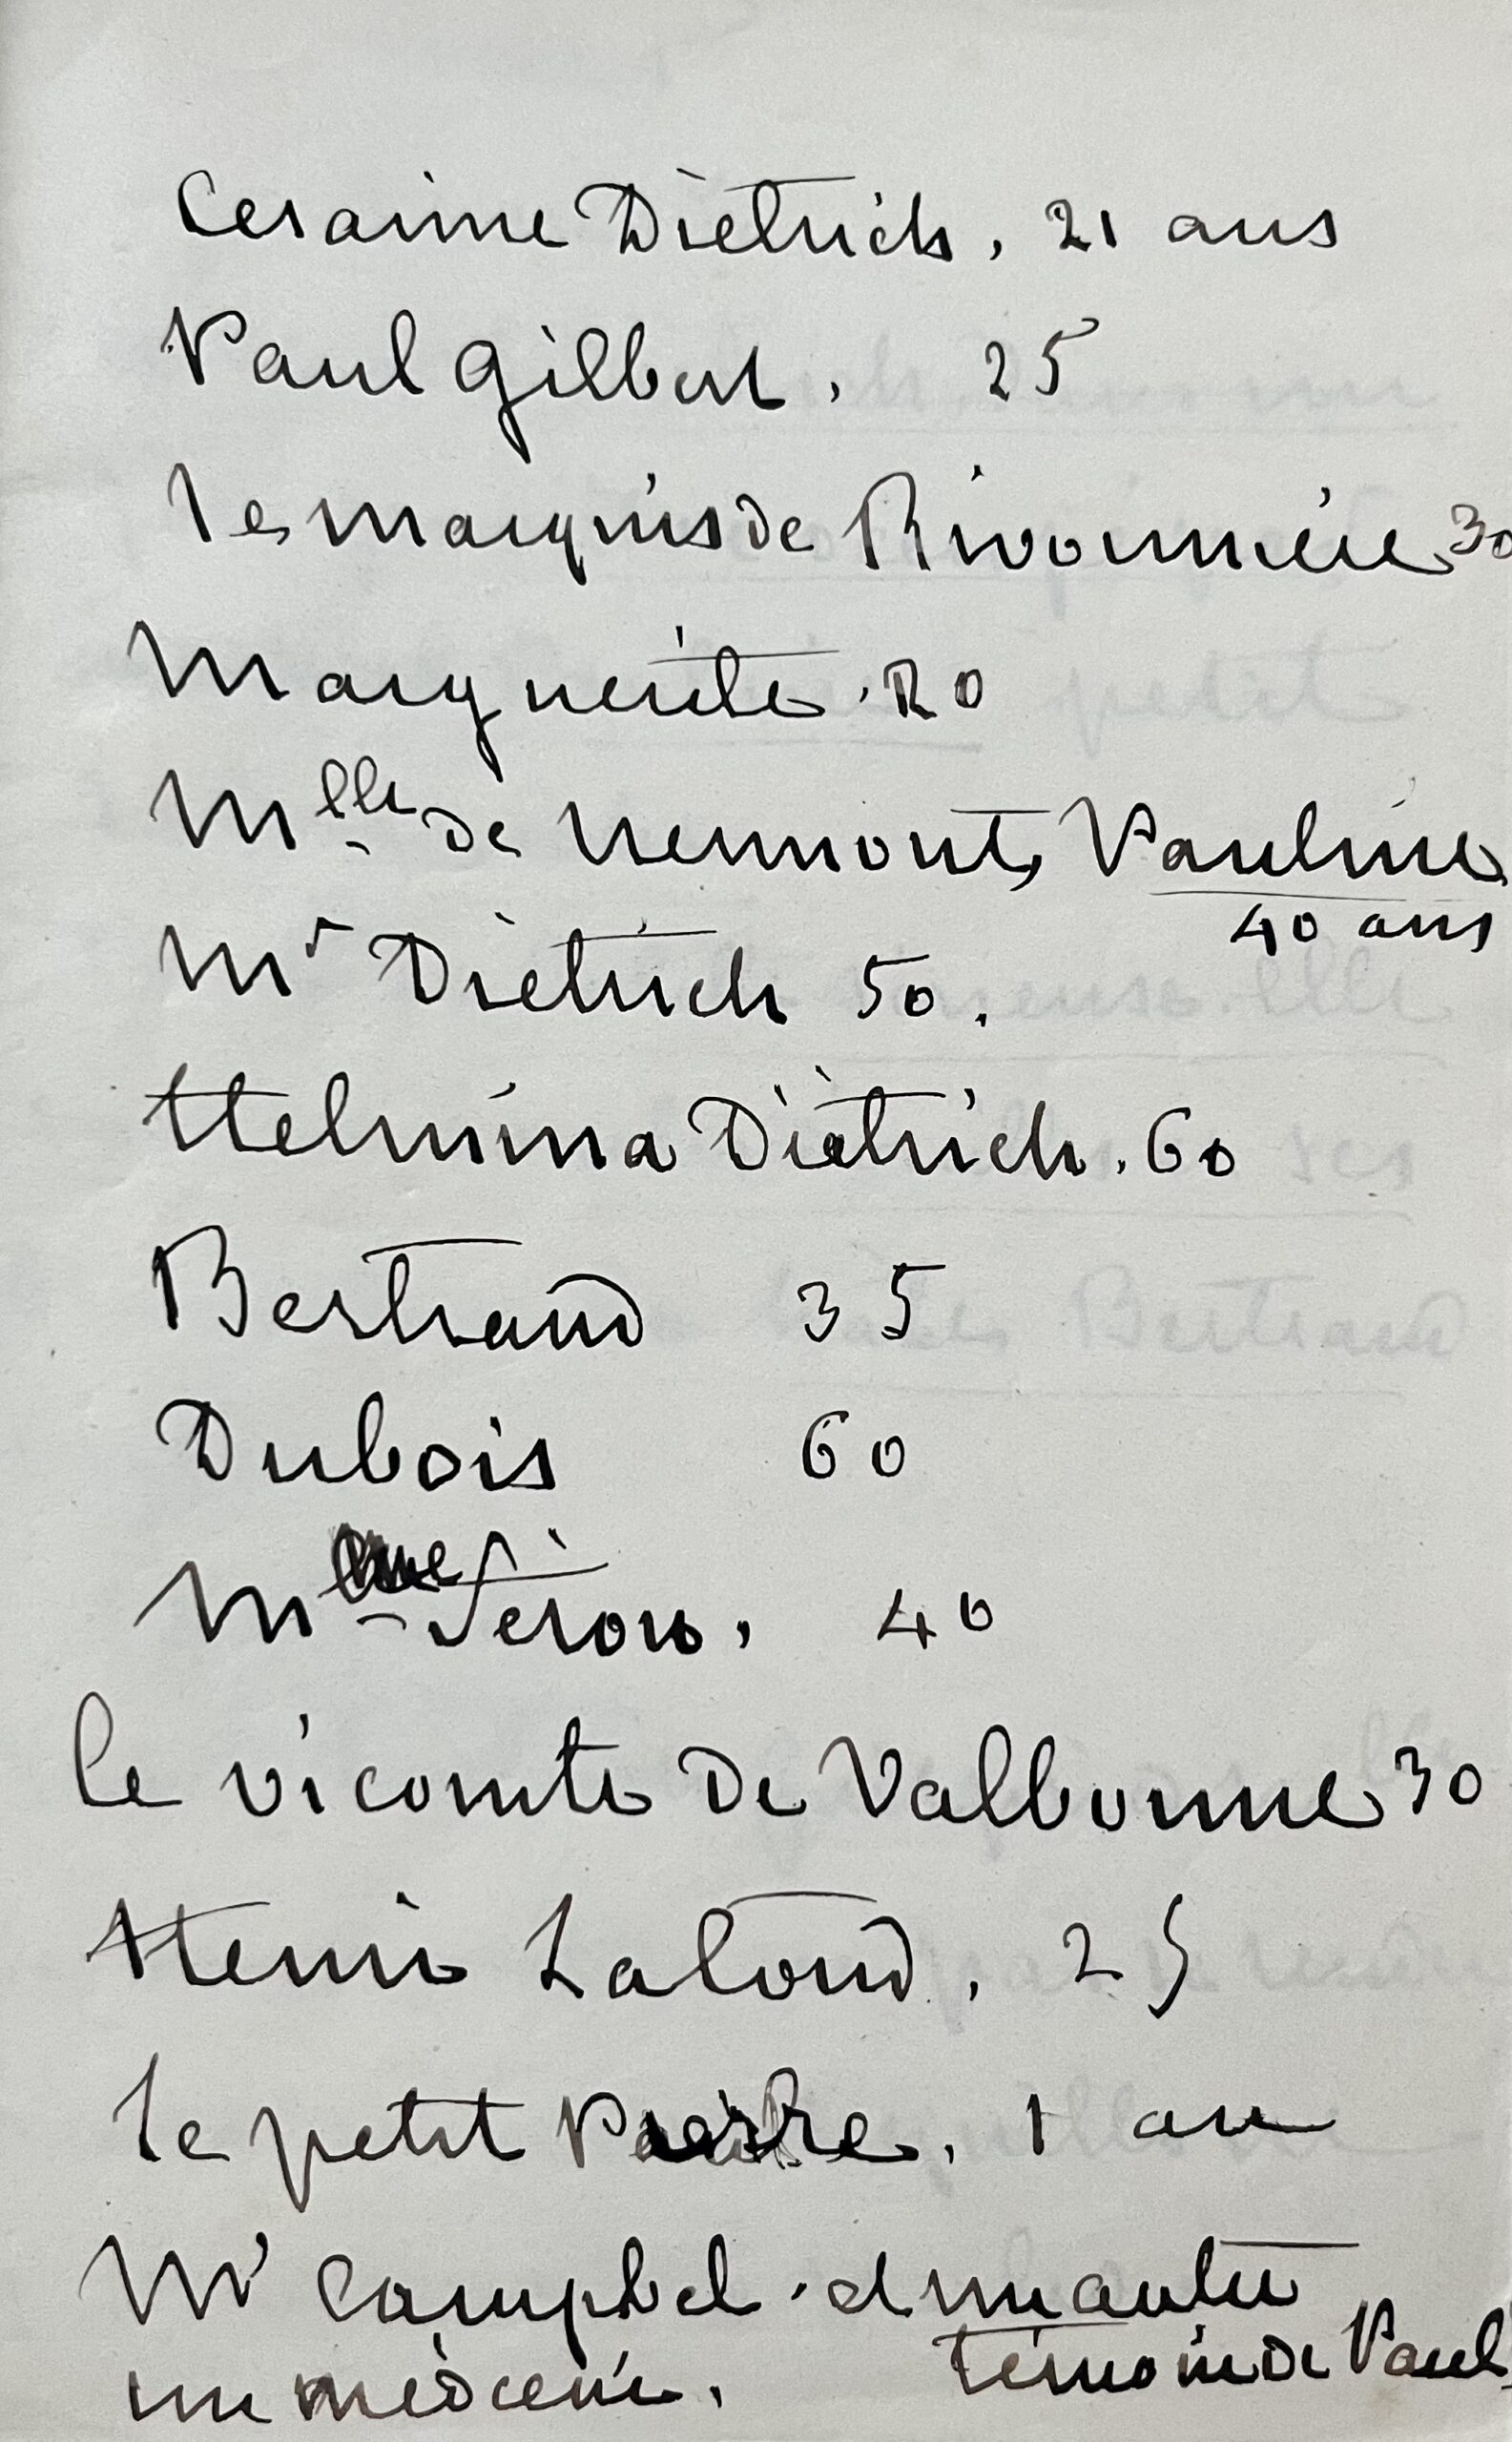 Cesarine Dietrich, 21 ans
Paul Gilbert, 25
le marquis de Rivonnière 30
Marguerite . 20
Mlle de Nermont, Pauline
40 ans
Mr Dietrich 50.
Helmina Dietrich. 60
Bertrand 35
Dubois 60
Mme Féron, 40
le vicomte de Valbonne 30
Henri Latour, 25
le petit Pierre, 1 an
Mr Campbel . et un autre
témoin de Paul,
un médecin.